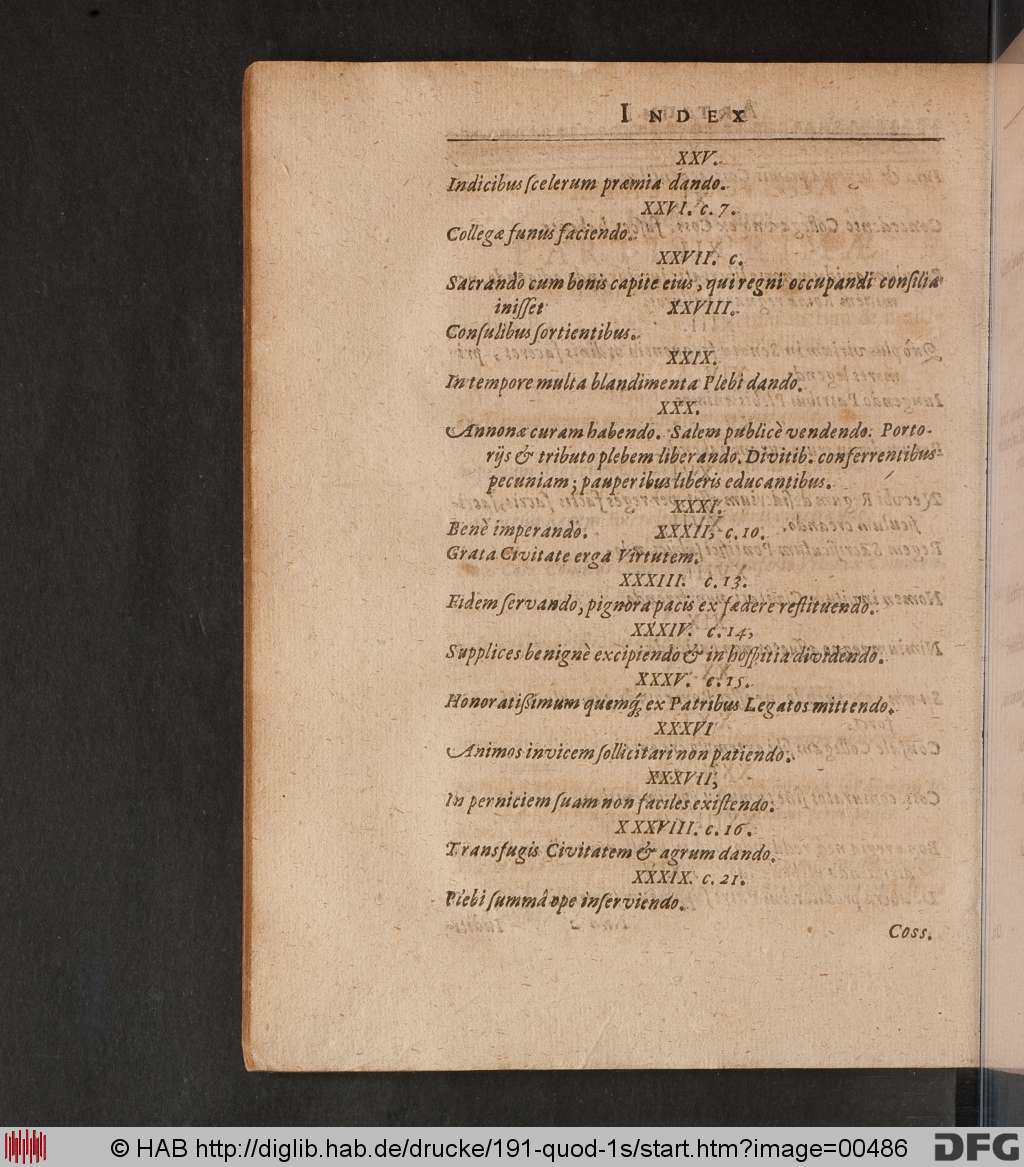 INDEX
XXV.
Indicibus ſcelerum præmia dando.
XXVI. c. 7.
Collegæ funus faciendo.
XXVII. c.
Sacrando cum bonis capite eius, qui regni occupandi conſilia
iniſſet XXVIII.
Conſulibus ſortientibus.
XXIX.
In tempore multa blandimenta Plebi dando.
XXX.
Annonæ curam habendo. Salem publicè vendendo. Porto-
rijs & tributo plebem liberando. Divitib. conferrentibus
pecuniam; pauperibus liberis educantibus.
XXXI.
Benè imperando. XXXII, c. 10.
Grata Civitate erga Virtutem.
XXXIII. c. 13.
Fidem ſervando, pignora pacis ex fædere reſtituendo.
XXXIV. c. 14,
Supplices benignè excipiendo & in hoſpitia dividendo.
XXXV. c. 15.
Honoratiſſimum quemq́; ex Patribus Legatos mittendo.
XXXVI
Animos invicem ſollicitari non patiendo.
XXXVII,
In perniciem ſuam non faciles exiſtendo.
XXXVIII. c. 16.
Transfugis Civitatem & agrum dando.
XXXIX. c. 21.
Plebi ſummâ ope inſerviendo.
Coss.
© HAB http://diglib.hab.de/drucke/191-quod-1s/start.htm?image=00486
DFG